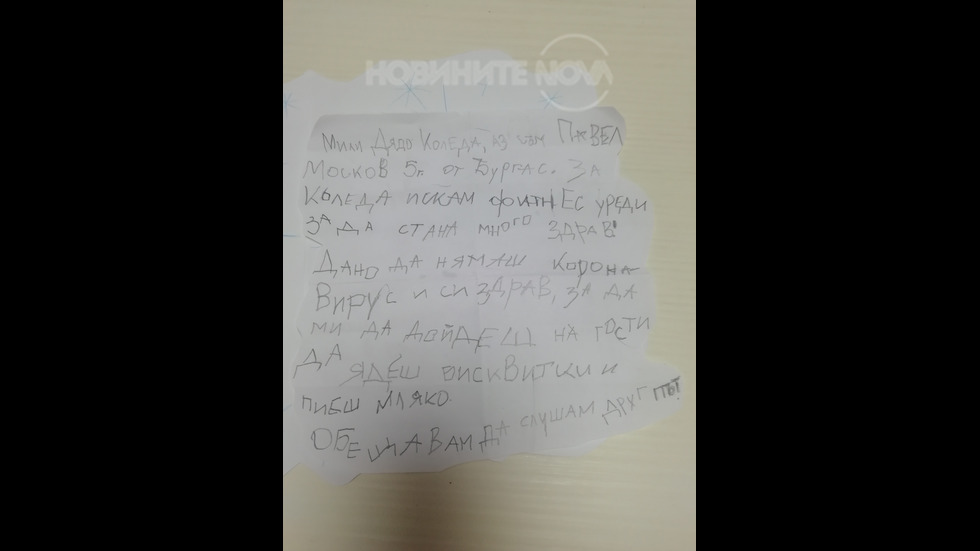 НОВИНИТЕ NOVA
Мили Дядо Коледа, аз съм Павел
Москов 5г от Бургас. За
Коледа искам фитнЕс уреди
за да стана много здрав!
Дано да нямаш корона
Вирус и си здрав, за да
ми да дойдеш на гости
да ядеш бисквитки и
пиеш мляко.
Обещавам да слушам друг път!